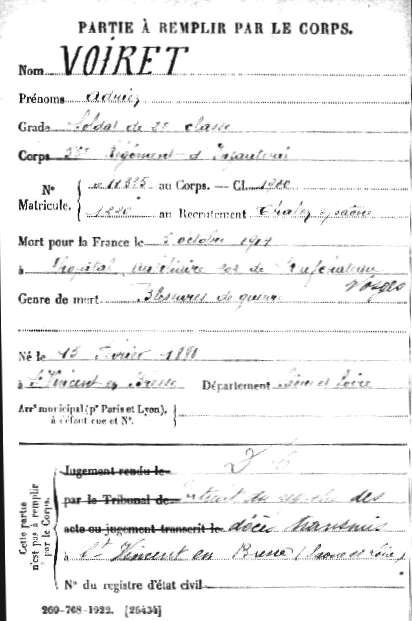 PARTIE À REMPLIR PAR LE CORPS.
Nom VOIRET
Prénoms Adrien
Grade Soldat de 2e classe
Corps Régiment d'Infanterie
N° Matricule. { 11395 au Corps. — Cl. 1900
1220 au Recrutement Chalon s/Saône
Mort pour la France le 2 octobre
à Hôpital militaire de
Vosges
Genre de mort Blessures de guerre
Né le 15 Février
à St Vincent en Bresse Département Saône et Loire
Arrt municipal (pr Paris et Lyon), à défaut rue et N°. {
Cette partie n'est pas à remplir par le Corps.
Jugement rendu le
par le Tribunal de Extrait du des
acte ou jugement transcrit le décès transmis
à St Vincent en Bresse (Saône et Loire)
N° du registre d'état civil
260-708-1922. [26434]